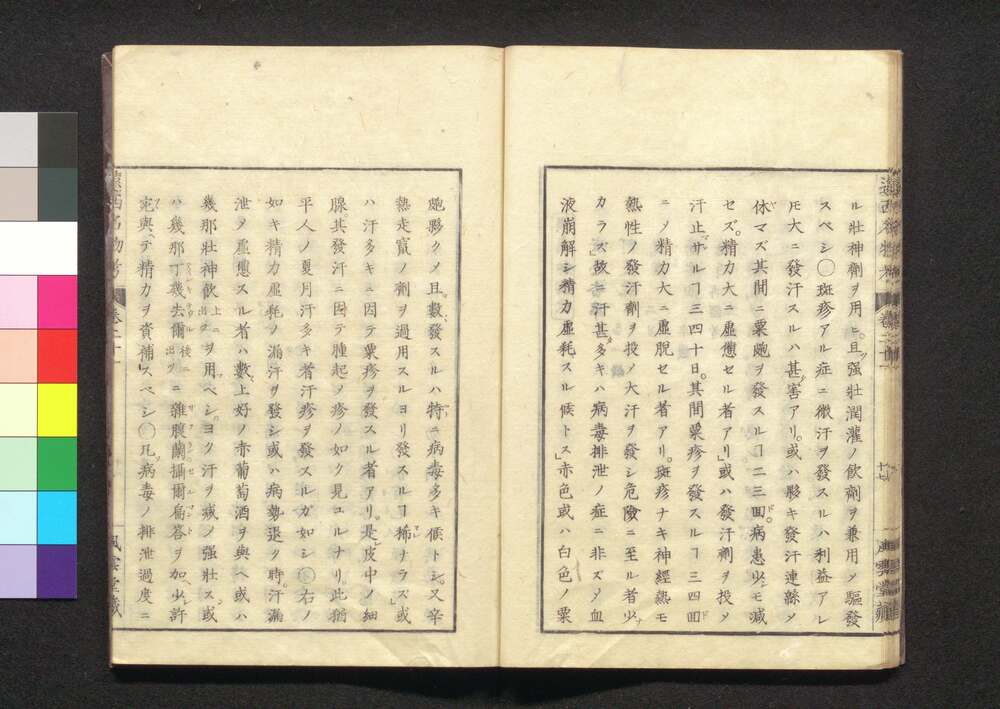 ル壮神劑ヲ用ヒ。且強壮潤灌ノ飲劑ヲ兼用メ驅發
スベシ○斑疹アル症ニ微汗ヲ發スルハ利益アレ
𪜈大ニ發汗スルハ甚害アリ。或ハ夥キ發汗連綿ノ
休マズ其間ニ粟皰ヲ發スルヿ二三回。病患少モ減
セズ。精力大ニ虛憊セル者アリ」或ハ發汗劑ヲ投メ
汗止ザルヿ三四十日。其間粟疹ヲ發スルヿ三四回
ニメ精力大ニ虛脱セル者アリ。斑疹ナキ神經熱モ
熱性ノ發汗劑ヲ投メ大汗ヲ發シ危險ニ至ル者少
カラズ」故ニ汗甚多キハ病毒排泄ノ症ニ非ズメ血
液崩解シ精力虛耗スル候トス」赤色或ハ白色ノ粟
皰夥クメ且數發スルハ特ニ病毒多キ候トシ。又辛
熱走竄ノ劑ヲ過用スルヨリ發スルヿ稀ナラズ」或
ハ汗多キニ因テ粟疹ヲ發スル者アリ。是皮中ノ細
腺。其發汗ニ因テ腫起メ疹ノ如ク見ユルナリ。此猶
平人ノ夏月汗多キ者汗疹ヲ發スルガ如シ○右ノ
如キ精力虛耗ノ漏汗ヲ發シ或ハ病勢退ク時。汗漏
泄メ虛憊スル者ハ數上好ノ赤葡萄酒ヲ與ヘ或ハ
幾那壮神飲上ニ出ヅヲ用ベシ。ヨク汗ヲ減メ強壮ス或
ハ幾那丁幾去爾後ニ出ヅニ雜腹蘭攝爾扁答ヲ加。少許
宛與ヘテ精力ヲ資補スベシ○凡病毒ノ排泄過度ニ
遠西名物考
卷二十一
十七
風雲堂藏